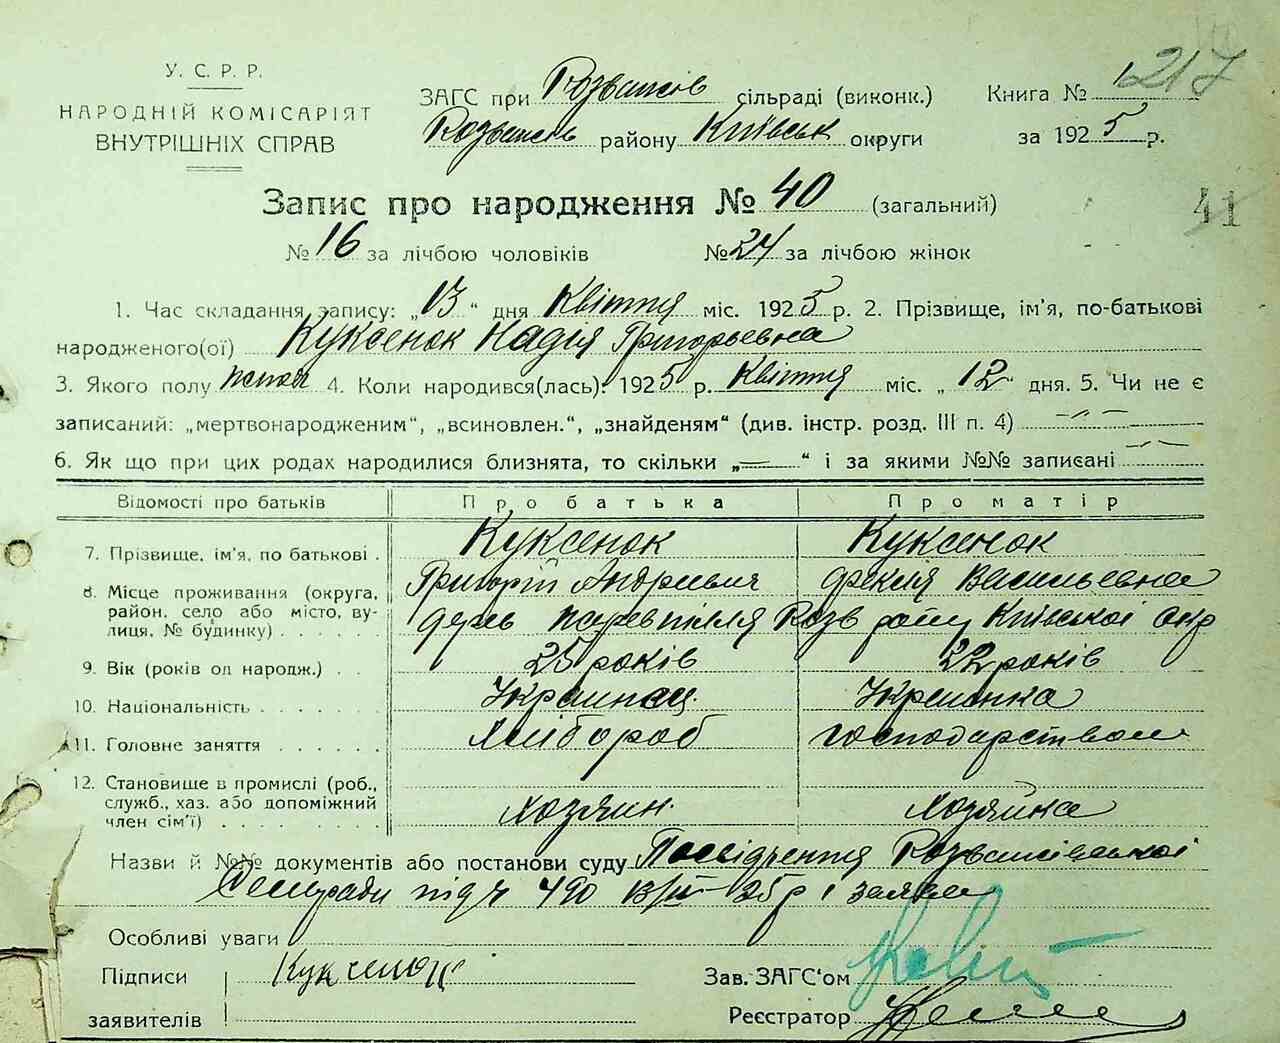 У. С. Р. Р.
НАРОДНІЙ КОМІСАРІЯТ
ВНУТРІШНІХ СПРАВ
ЗАГС при Розважів сільраді (виконк.)
Розважів району Київськ округи
Книга № 1217
за 1925 р.
Запис про народження № 40 (загальний)
41
№ 16 за лічбою чоловіків № 24 за лічбою жінок
1. Час складання запису: „13“ дня Квітня міс. 1925 р. 2. Прізвище, ім'я, по-батькові
народженого(ої) Куксенок Надія Григорьевна
3. Якого полу 4. Коли народився(лась): 1925 р. Квітня міс. „12“ дня. 5. Чи не є
записаний: „мертвонародженим“, „всиновлен.“, „знайденям“ (див. інстр. розд. III п. 4)
6. Як що при цих родах народилися близнята, то скільки „—“ і за якими №№ записані
Відомості про батьків Про батька Про матір
7. Прізвище, ім'я, по батькові . Куксенок Куксенок
Григорій Андреевич Васильевна
8. Місце проживання (округа,
район, село або місто, ву-
лиця, № будинку) . . . . . Розв Київської окр
9. Вік (років од народж.) . . 25 років 22 років
10. Національність . . . . . . . Украинец Украинка
11. Головне заняття . . . . . . Хлібороб господарством
12. Становище в промислі (роб.,
служб., хаз. або допоміжний
член сім'ї) . . . . . . . . Хозяин. Хозяйка
Назви й №№ документів або постанови суду Посвідчення Розважівської
Сельради під ч 490 13/IV 25 р і заява
Особливі уваги
Підписи
заявителів
Куксенок
Зав. ЗАГС'ом
Реєстратор